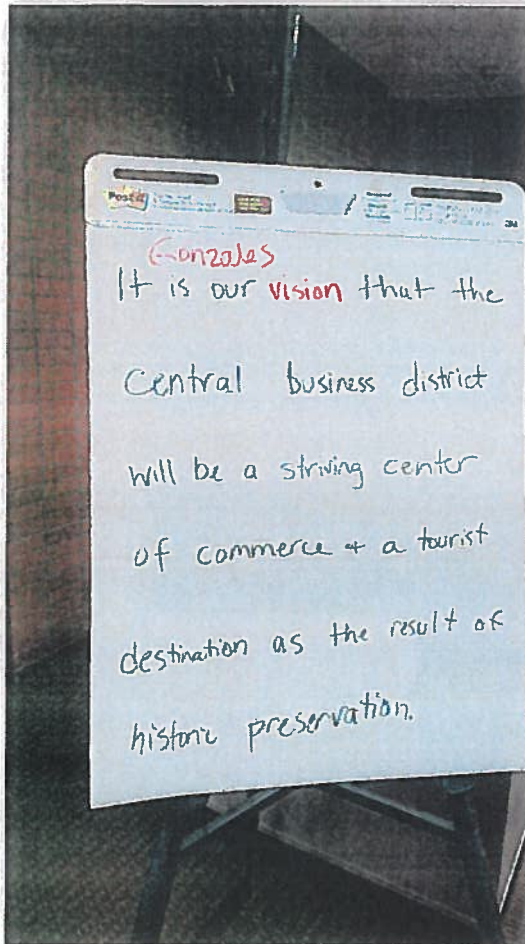 Post-it
3M
Gonzales
It is our vision that the
Central business district
will be a striving center
of commerce + a tourist
destination as the result of
historic preservation.